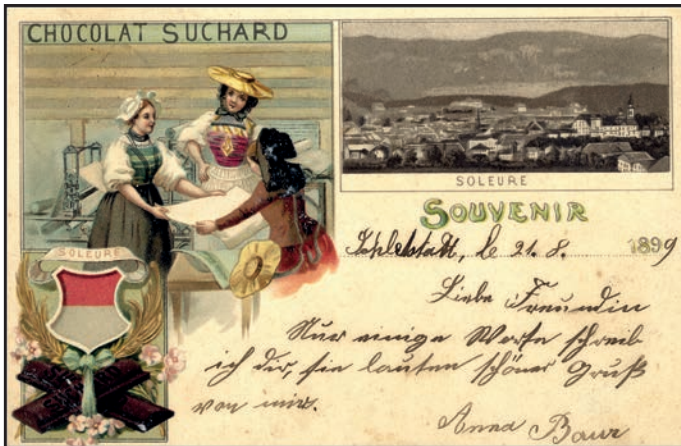 CHOCOLAT SUCHARD
SOLEURE
SOUVENIR
Schlettstadt, le 21. 8. 1899
Liebe Freundin
Nur einige Worte schreib
ich dir, sie lauten schöner Gruß
von mir.
Anna Baur
SOLEURE